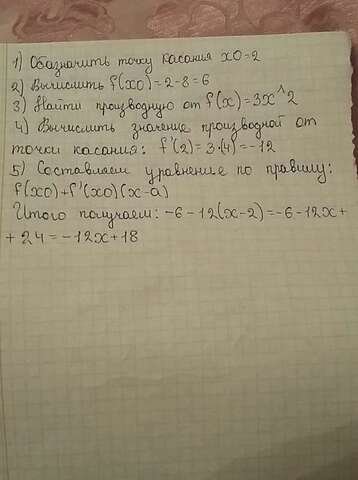 1) Обазначить точку касания x0=2
2) Вычислить f(x0)=2-8=6
3) Найти производную от f(x)=3x^2
4) Вычислить значение производной от
точки касания: f'(2)=3·(4)=-12
5) Составляем уравнение по правилу:
f(x0)+f'(x0)(x-a)
Итого получаем: -6-12(x-2)=-6-12x+
+24=-12x+18